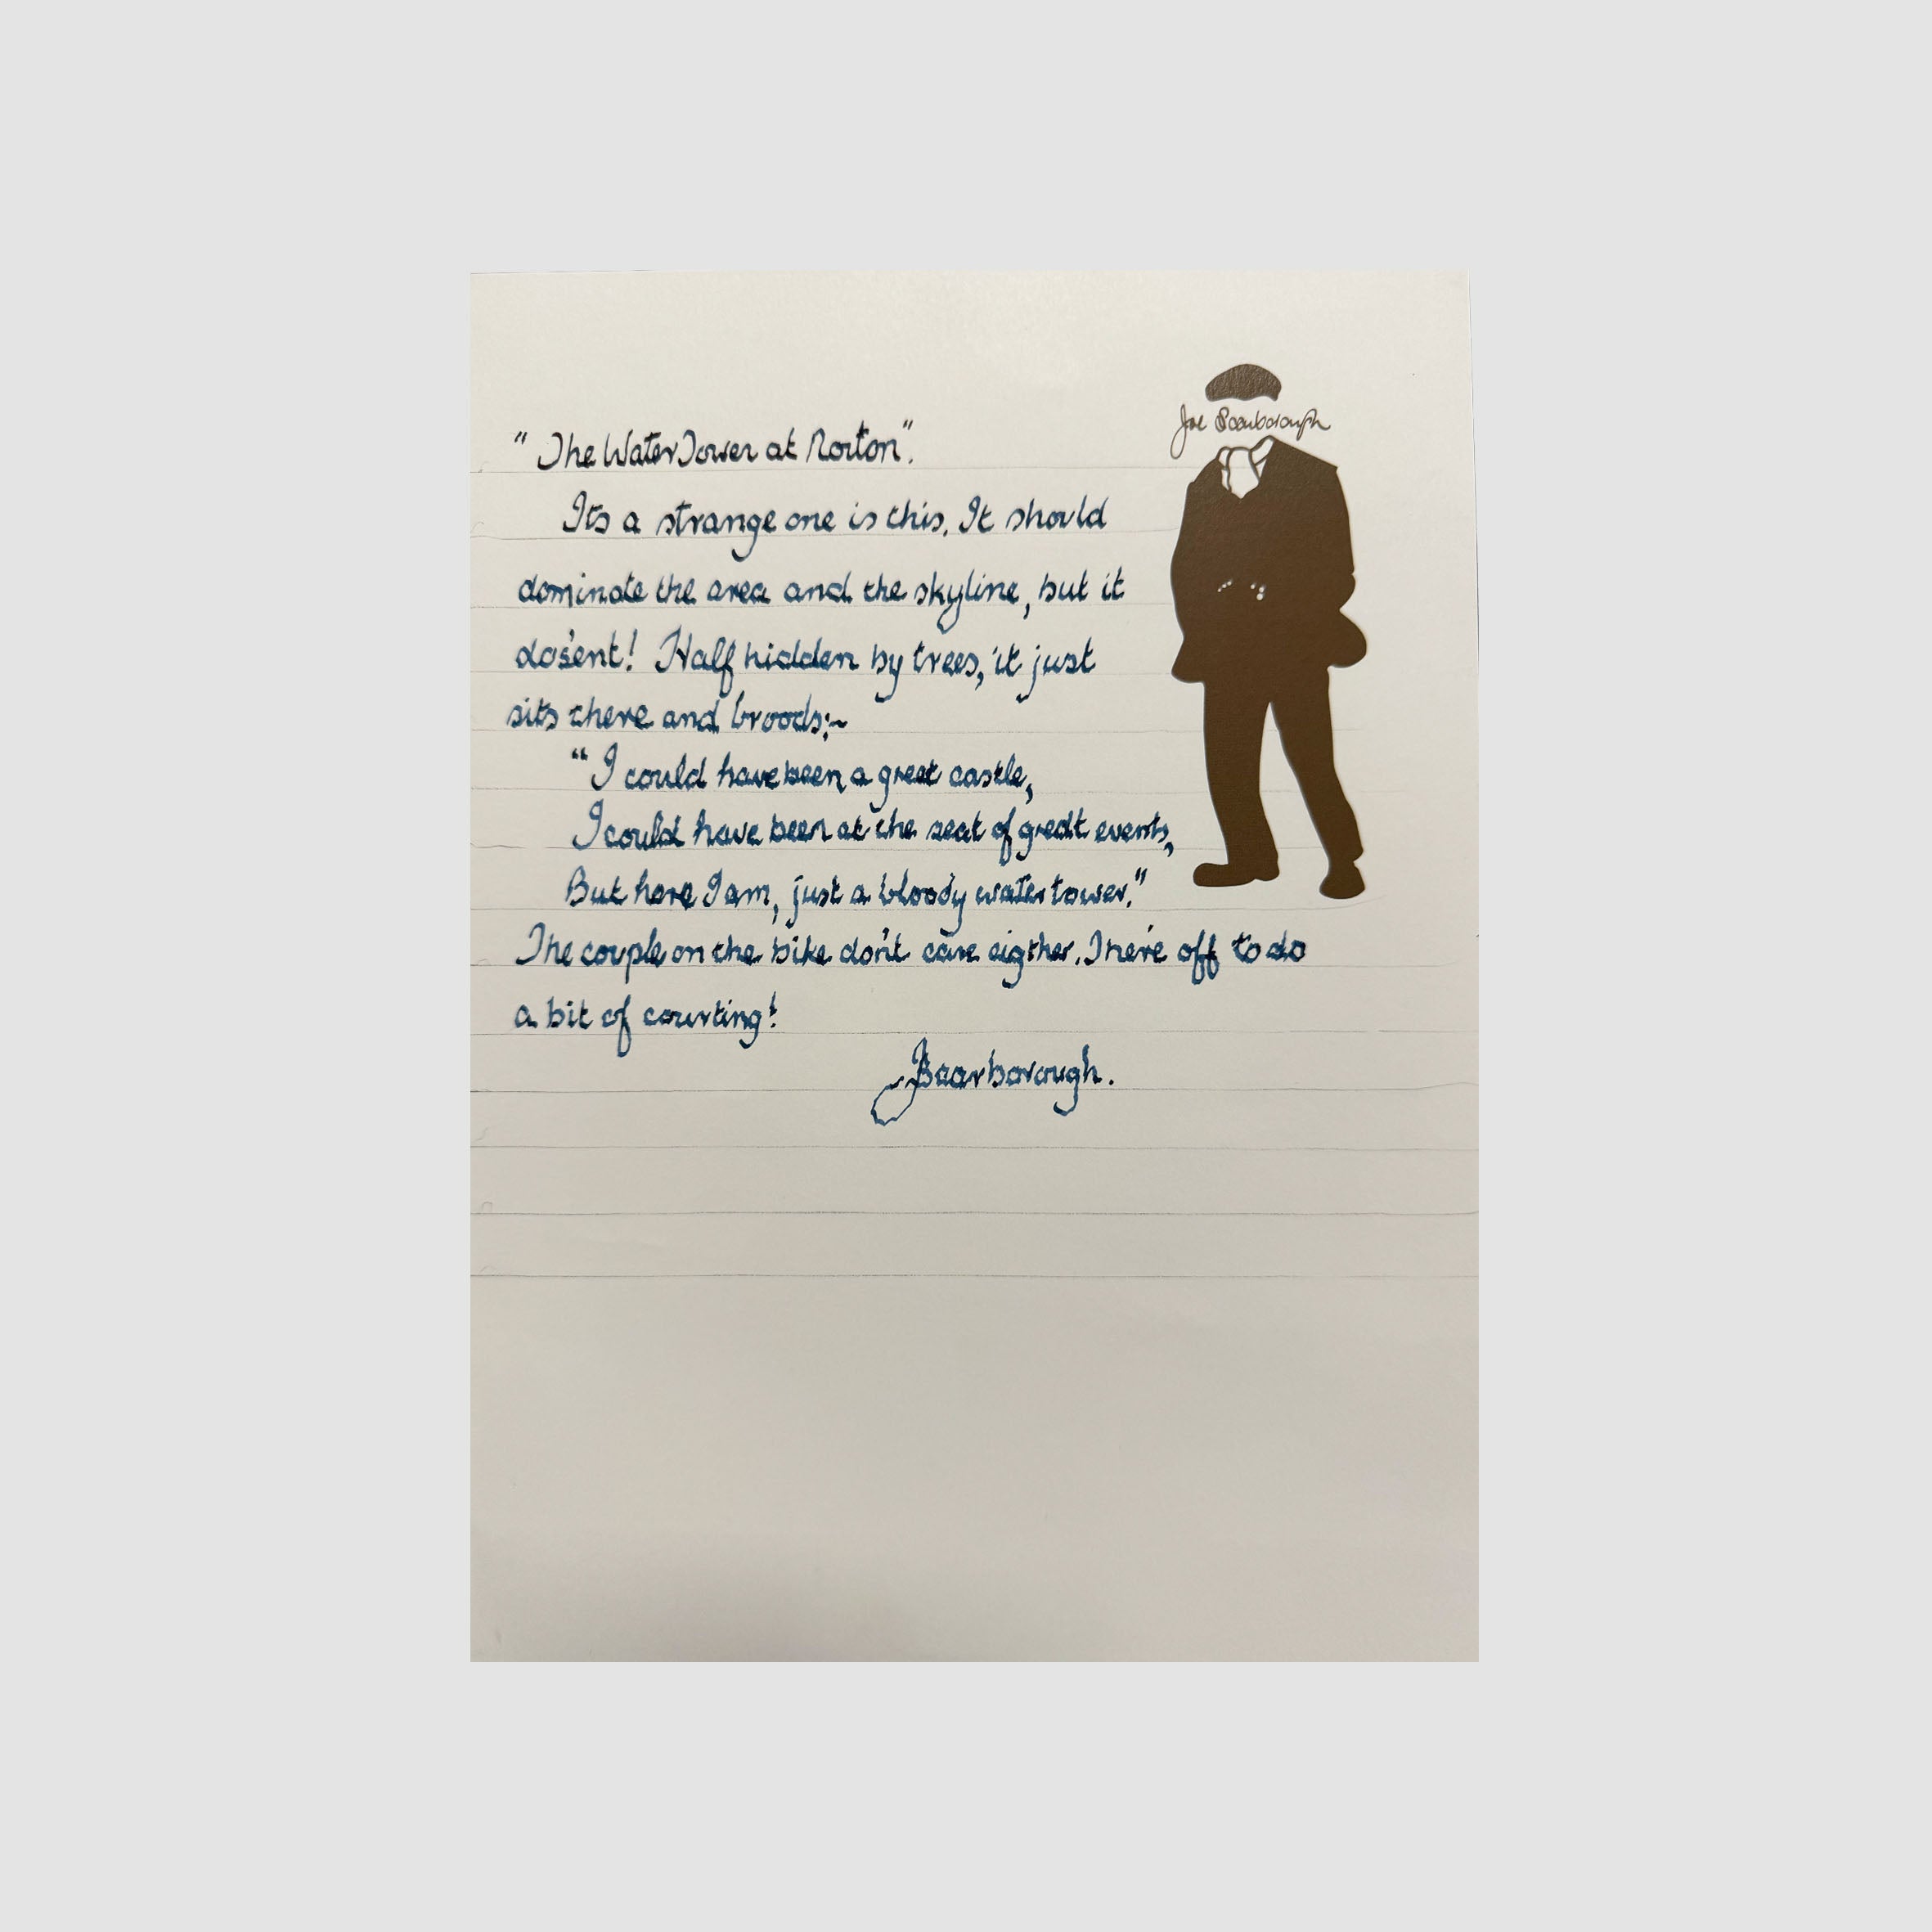 Joe Scarborough
"The Water Tower at Norton".
Its a strange one is this. It should
dominate the area and the skyline, but it
dos'ent! Half hidden by trees, it just
sits there and broods;~
"I could have been a great castle,
I could have been at the seat of great events,
But here I am, just a bloody water tower."
The couple on the bike do'nt care eigther. There'e off to do
a bit of courting!
JScarborough.